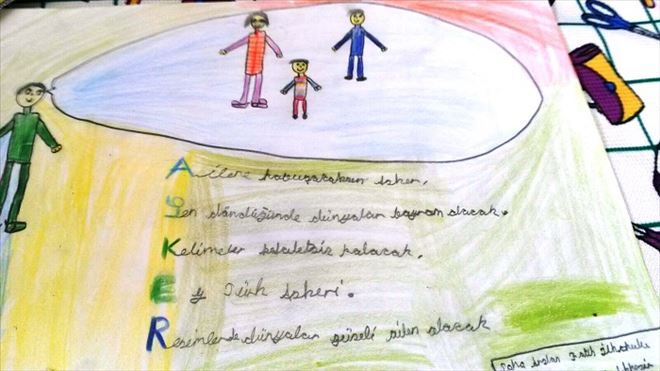 Ailene kavuşacaksın asker,
Sen döndüğünde dünyalar bayram olacak.
Kelimeler kalacak,
Ey Türk askeri.
Resimlerde dünyalar güzeli ailen olacak
Fatih İlkokulu